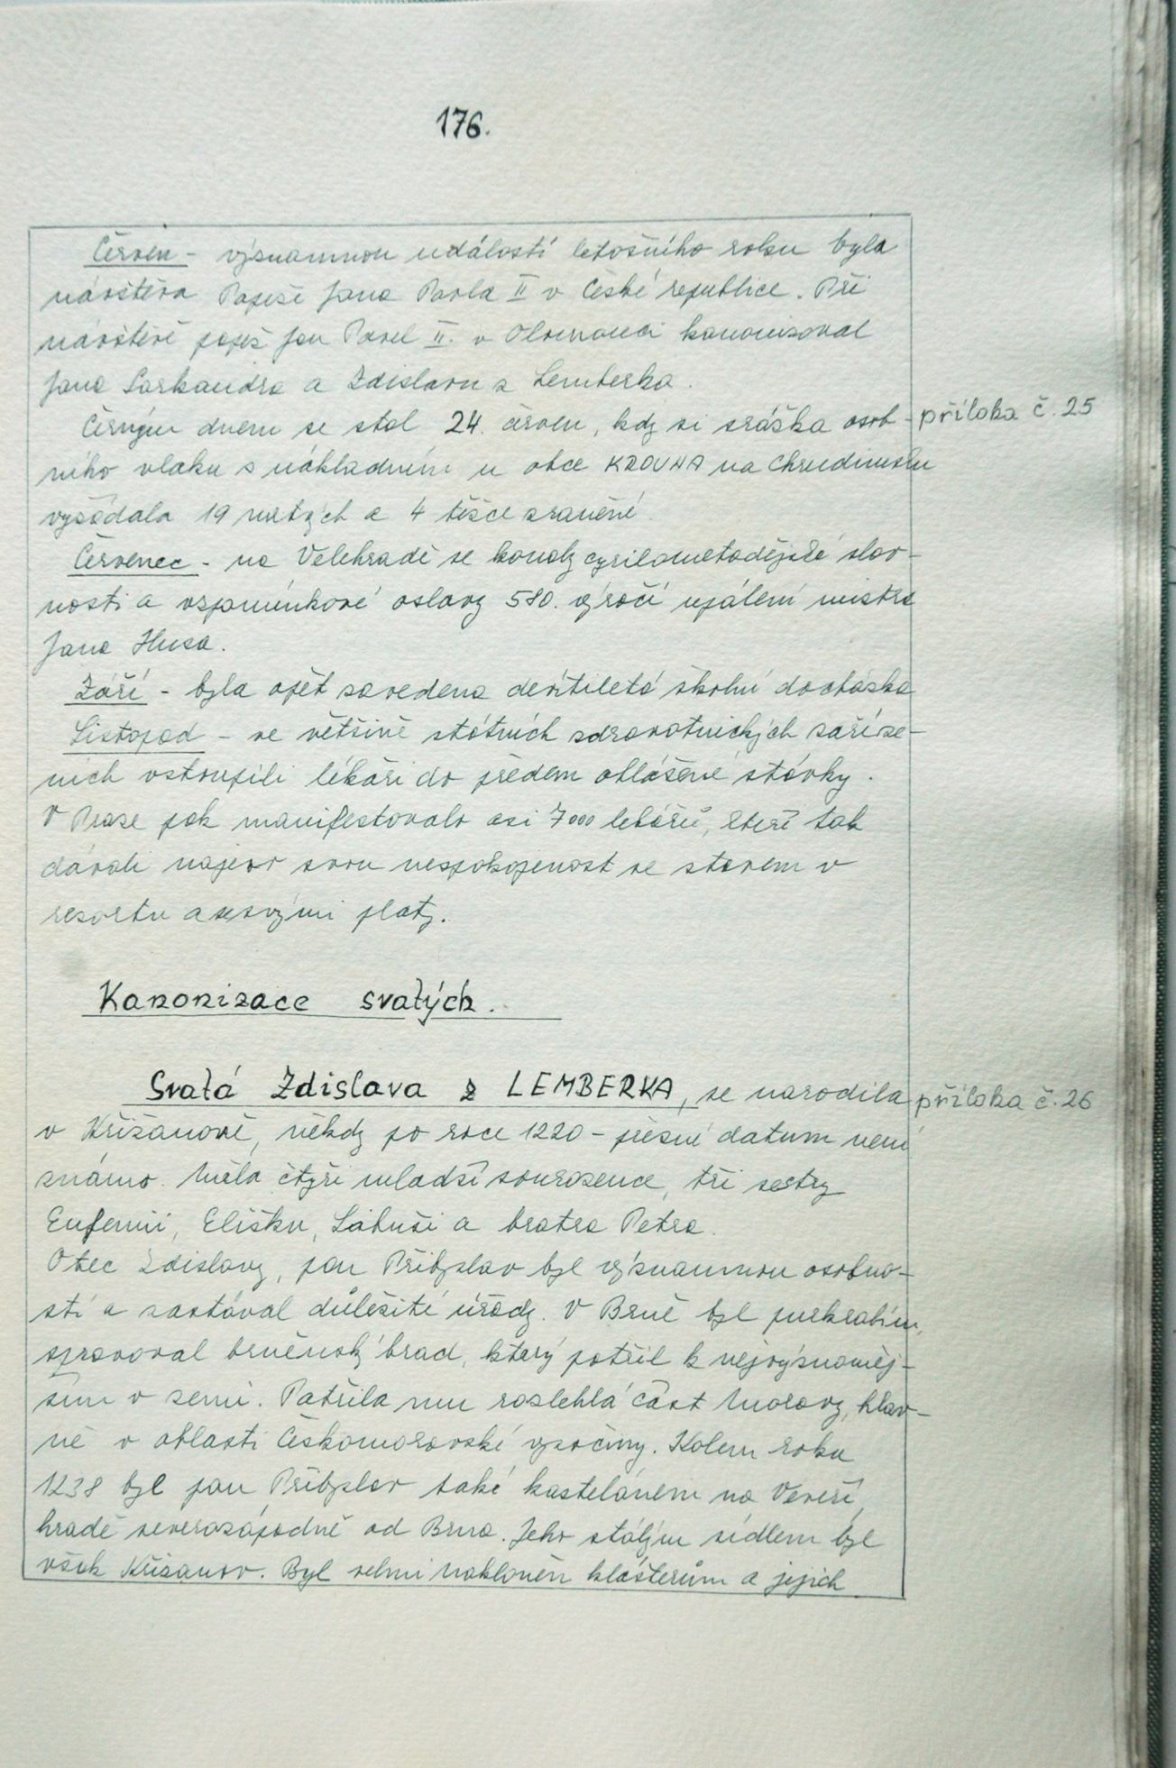 176.
Červen - významnou událostí letošního roku byla
návštěva Papeže Jana Pavla II v České republice. Při
návštěvě papež Jan Pavel II. v Olomouci kanonizoval
Jana Sarkandra a Zdislavu z Lemberka.
Černým dnem se stal 24. červen, kdy si srážka osob- příloha č. 25
ního vlaku s nákladním u obce KROUNA na Chrudimsku
vyžádala 19 mrtvých a 4 těžce zraněné.
Červenec - na Velehradě se konaly cyrilometodějské slav-
nosti a vzpomínkové oslavy 580. výročí upálení mistra
Jana Husa.
Září - byla opět zavedena devítiletá školní docházka
Listopad - ve většině státních zdravotnických zaříze-
ních vstoupili lékaři do předem ohlášené stávky.
V Praze pak manifestovalo asi 7000 lékařů, kteří tak
dávali najevo svou nespokojenost se stavem v
resortu a se svými platy.
Kanonizace svatých.
Svatá Zdislava z LEMBERKA, se narodila příloha č. 26
v Křižanově, někdy po roce 1220 - přesné datum není
známo. Měla čtyři mladší sourozence, tři sestry
Eufemii, Elišku, Libuši a bratra Petra.
Otec Zdislavy, pan Přibyslav byl význammou osobno-
stí a zastával důležité úřady. V Brně byl purkrabím,
spravoval brněnský hrad, který patřil k nejvýznamněj-
ším v zemi. Patřila mu rozlehlá část Moravy, hlav-
ně v oblasti Českomoravské vysočiny. Kolem roku
1238 byl pan Přibyslav také kastelánem na Veveří,
hradě severozápadně od Brna. Jeho stálým sídlem byl
však Křižanov. Byl velmi nakloněn klášterům a jejich